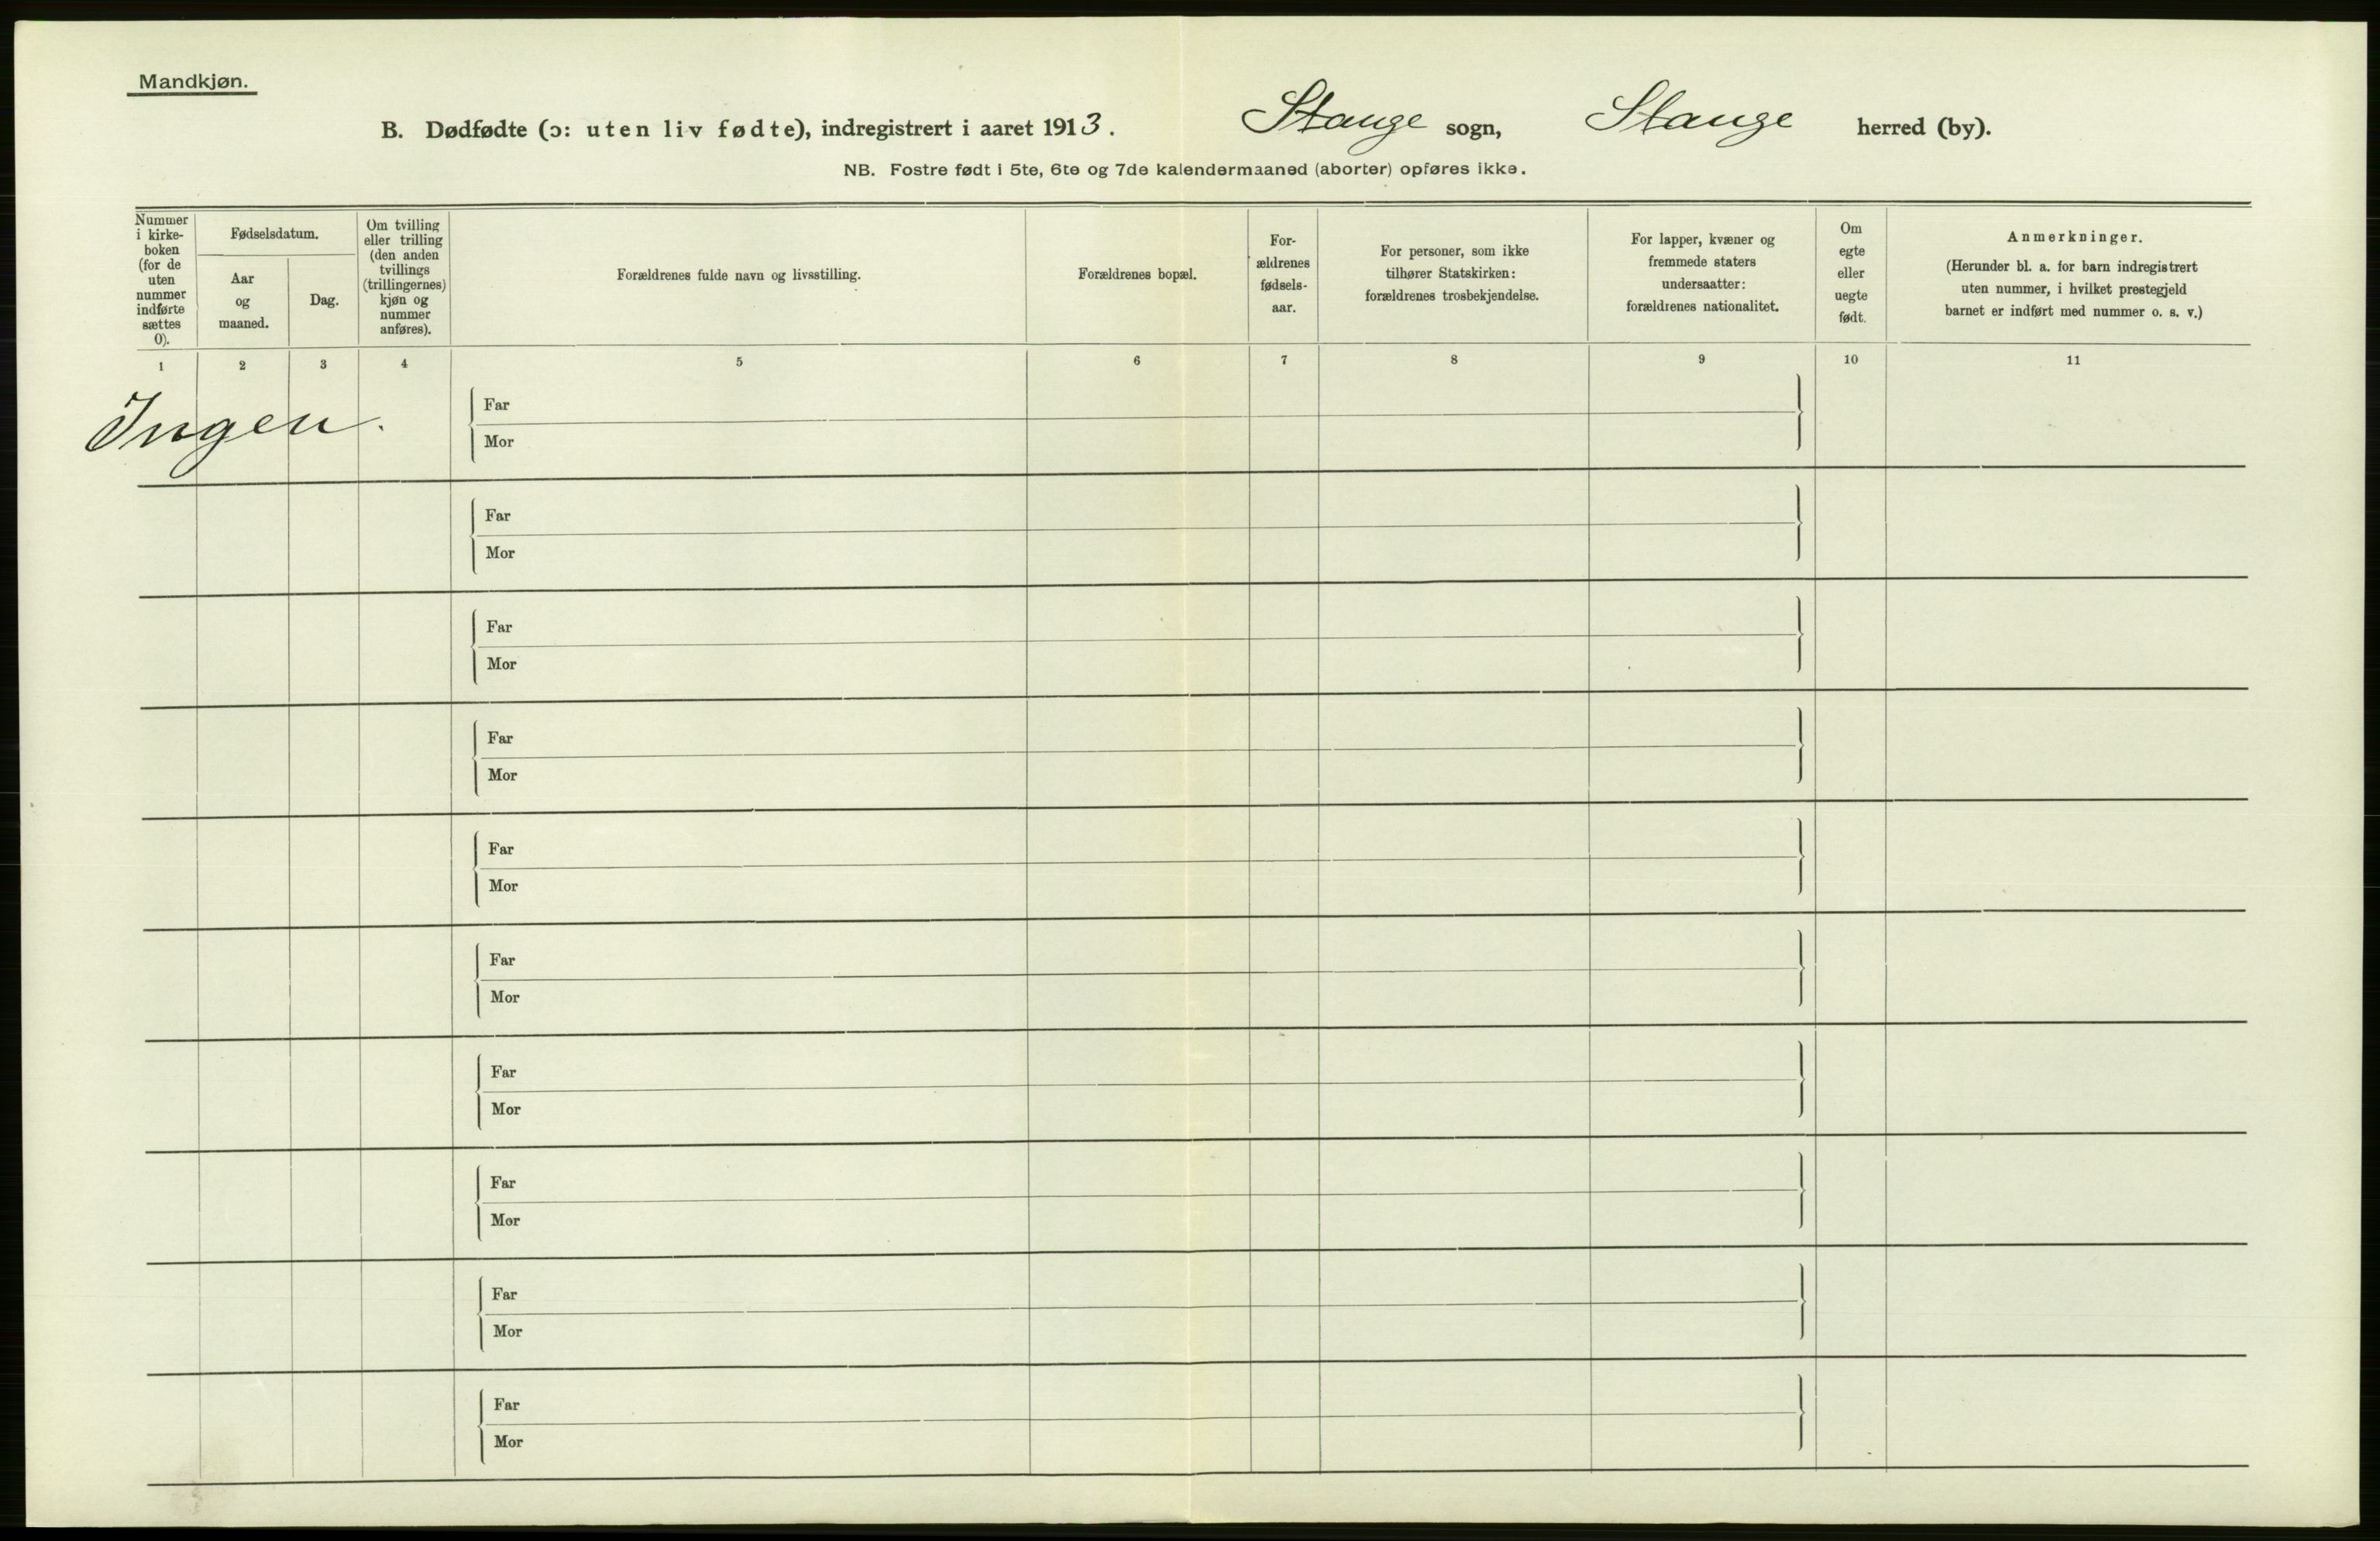 Mandkjøn.
B. Dødfødte (ɔ: uten liv fødte), indregistrert i aaret 1913. Stange sogn, Stange herred (by).
NB. Fostre født i 5te, 6te og 7de kalendermaaned (aborter) opføres ikke.
Nummer
i kirke-
boken
(for de
uten
nummer
indførte
sættes
0).
Fødselsdatum.
Aar
og
maaned.
Dag.
Om tvilling
eller trilling
(den anden
tvillings
(trillingernes)
kjøn og
nummer
anføres).
Forældrenes fulde navn og livsstilling.
Forældrenes bopæl.
For-
ældrenes
fødsels-
aar.
For personer, som ikke
tilhører Statskirken:
forældrenes trosbekjendelse.
For lapper, kvæner og
fremmede staters
undersaatter:
forældrenes nationalitet.
Om
egte
eller
uegte
født.
Anmerkninger.
(Herunder bl. a. for barn indregistrert
uten nummer, i hvilket prestegjeld
barnet er indført med nummer o. s. v.)
1 2 3 4 5 6 7 8 9 10 11
Ingen.
Far
Mor
Far
Mor
Far
Mor
Far
Mor
Far
Mor
Far
Mor
Far
Mor
Far
Mor
Far
Mor
Far
Mor